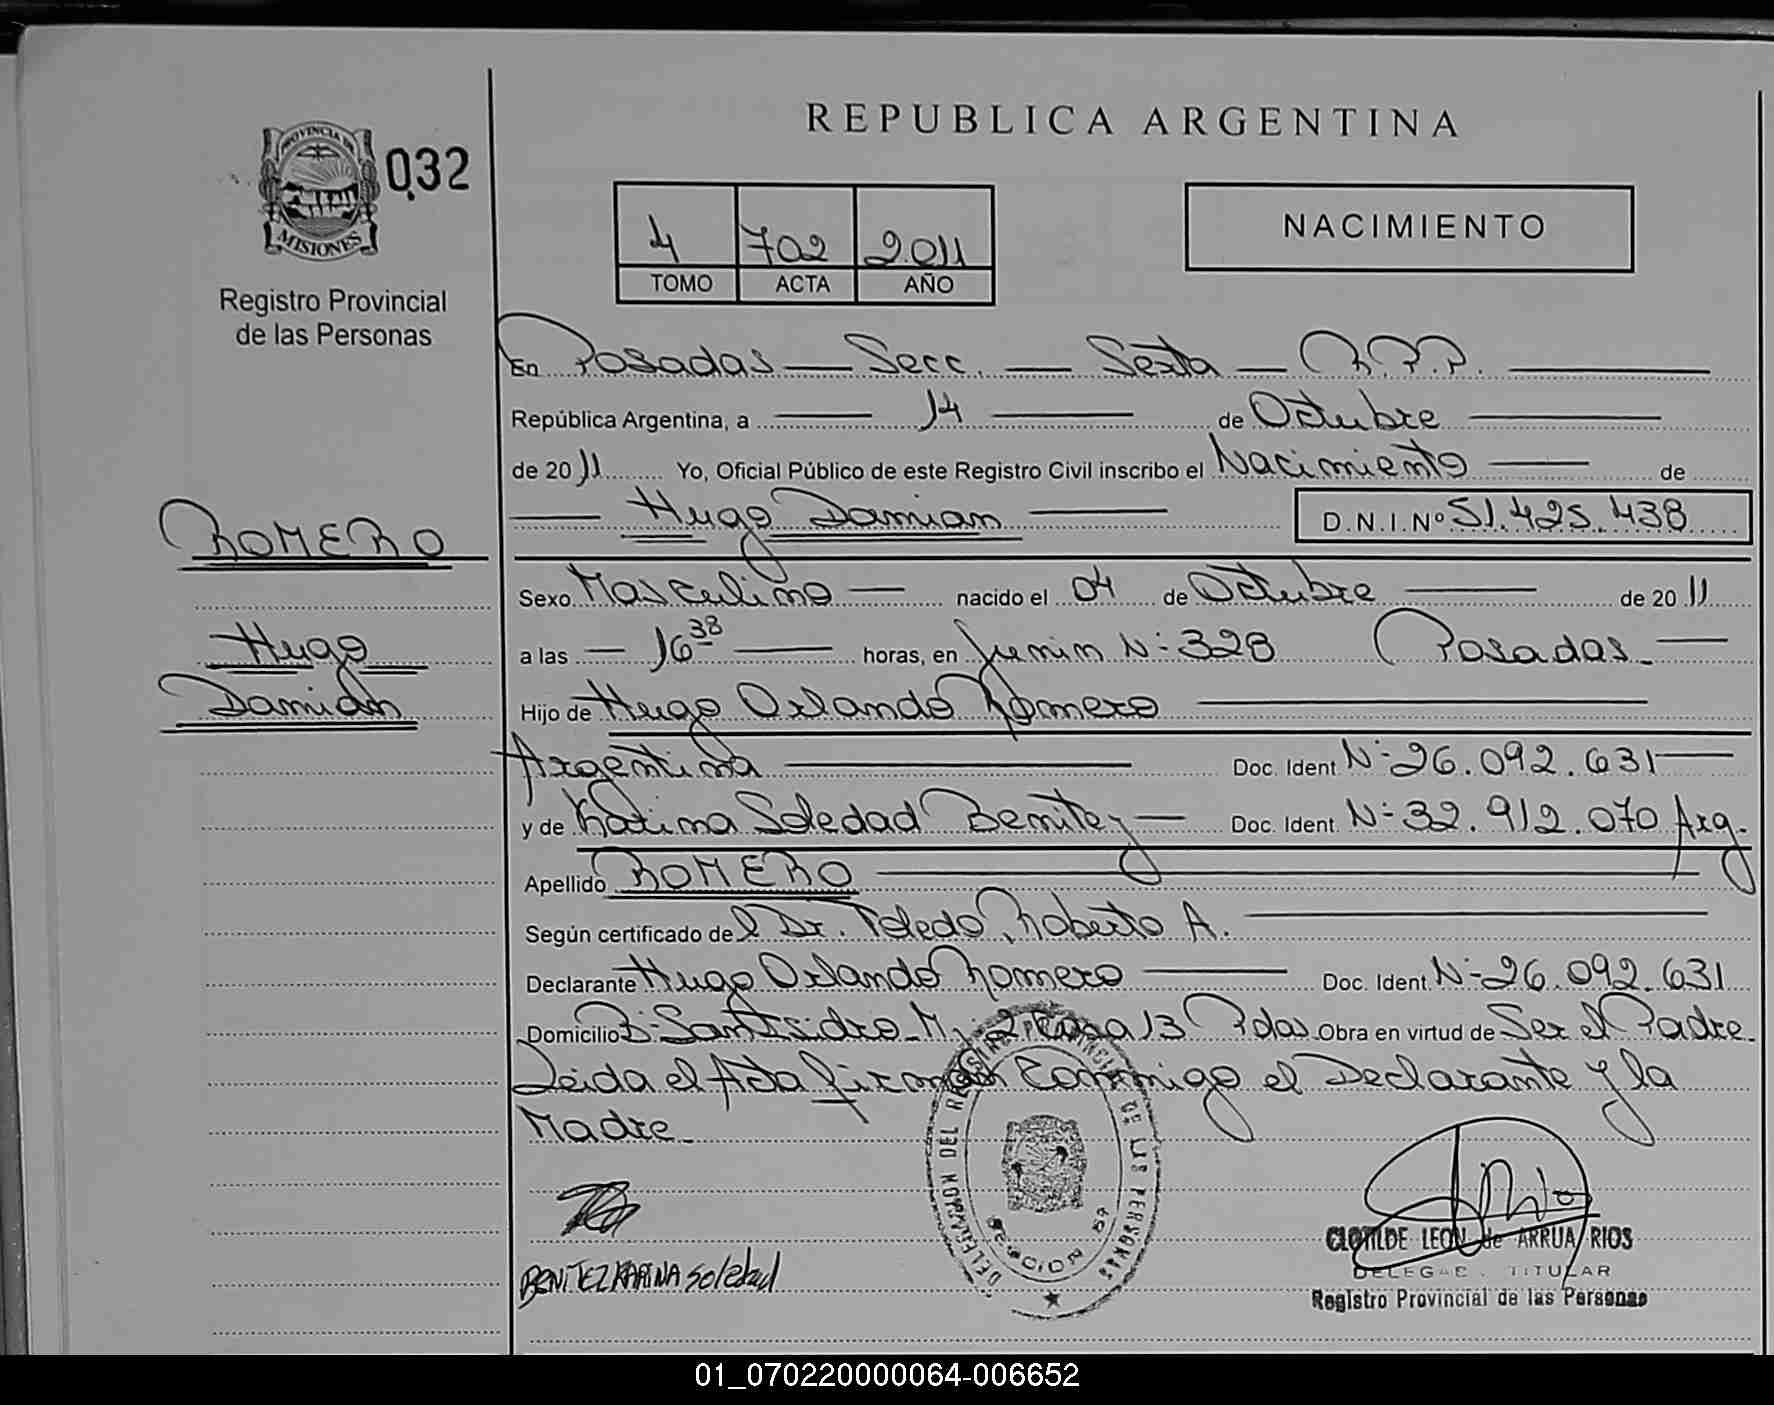 REPUBLICA ARGENTINA
PROVINCIA DE
MISIONES
032
Registro Provincial
de las Personas
4 702 2.011
TOMO ACTA AÑO
NACIMIENTO
En Posadas — Secc. — Sexta — R.P.P.
República Argentina, a — 14 — de Octubre
de 2011 Yo, Oficial Público de este Registro Civil inscribo el Nacimiento — de
— Hugo Damian — D.N.I.Nº 51.425.438
ROMERO
Sexo Masculino — nacido el 04 de Octubre — de 2011
Hugo
a las — 16 38 — horas, en Junin Nº 328 Posadas.
Damián
Hijo de Hugo Orlando Romero
Argentina — Doc. Ident Nº 26.092.631
y de Karina Soledad Benitez — Doc. Ident. Nº 32.912.070 Arg.
Apellido ROMERO
Según certificado del Dr. Toledo, Roberto A.
Declarante Hugo Orlando Romero — Doc. Ident. Nº 26.092.631
Domicilio Bº San Isidro M. 2 Casa 13 Pdas. Obra en virtud de Ser el Padre.
Leida el Acta firman Conmigo el Declarante y la
Madre.
DELEGACION DEL REGISTRO PROVINCIAL DE LAS PERSONAS
BENITEZ KARINA Soledad
CLOTILDE LEON de ARRUA RIOS
TITULAR
Registro Provincial de las Personas
01_070220000064-006652